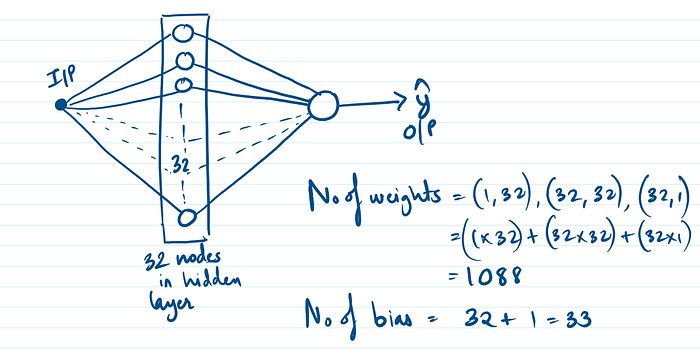 I/P
32
32 nodes
in hidden
layer
ŷ
O/P
No of weights = (1, 32), (32, 32), (32, 1)
= (1x32) + (32x32) + (32x1)
= 1088
No of bias = 32 + 1 = 33